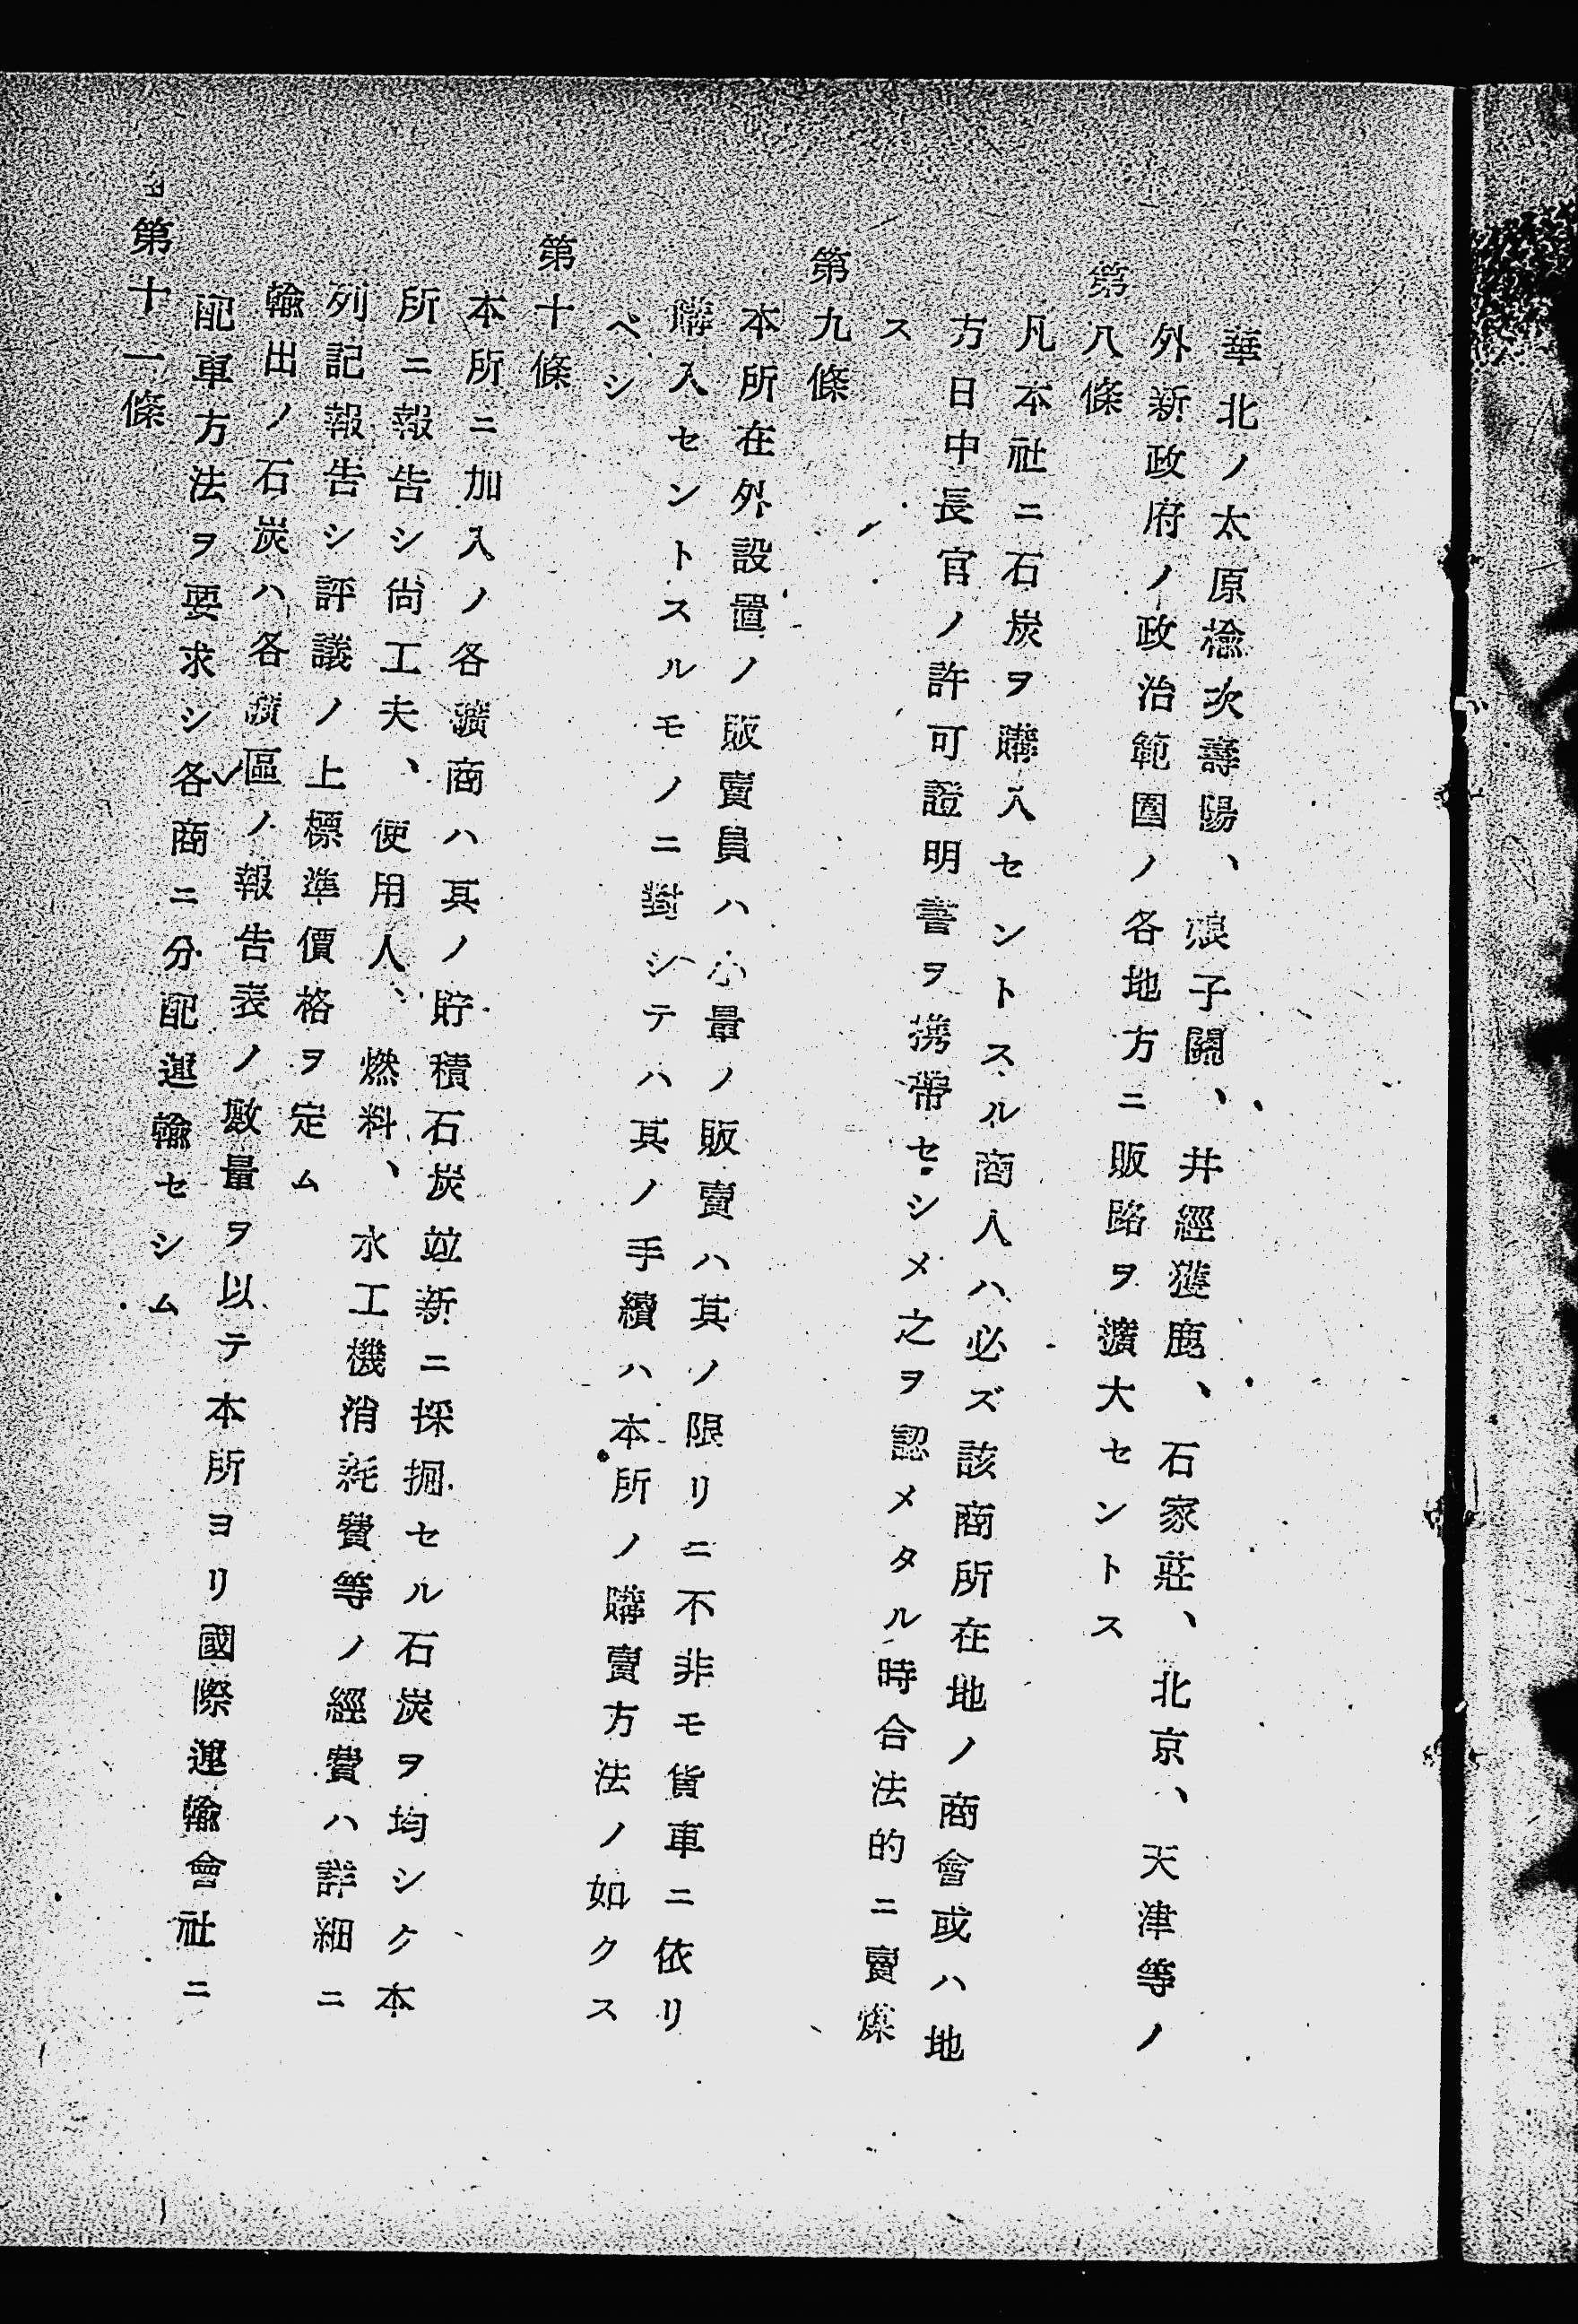 華北ノ太原楡次壽陽、娘子關、井經獲鹿、石家莊、北京、天津等ノ
外新政府ノ政治範囲ノ各地方ニ販路ヲ擴大セントス
第八條
凡本社ニ石炭ヲ購入セントスル商人ハ必ズ該商所在地ノ商會或ハ地
方日中長官ノ許可證明書ヲ携帶セシメ之ヲ認メタル時合法的ニ賣煤
ス
第九條
本所在外設置ノ販賣員ハ小量ノ販賣ハ其ノ限リニ不非モ貨車ニ依リ
購入セントスルモノニ對シテハ其ノ手續ハ本所ノ購賣方法ノ如クス
ベシ
第十條
本所ニ加入ノ各鑛商ハ其ノ貯積石炭竝新ニ採掘セル石炭ヲ均シク本
所ニ報告シ尚工夫、使用人、燃料、水工機消耗費等ノ經費ハ詳細ニ
列記報告シ評議ノ上標準價格ヲ定ム
輸出ノ石炭ハ各鑛區ノ報告表ノ數量ヲ以テ本所ヨリ國際運輸會社ニ
配車方法ヲ要求シ各商ニ分配運輸セシム
第十一條